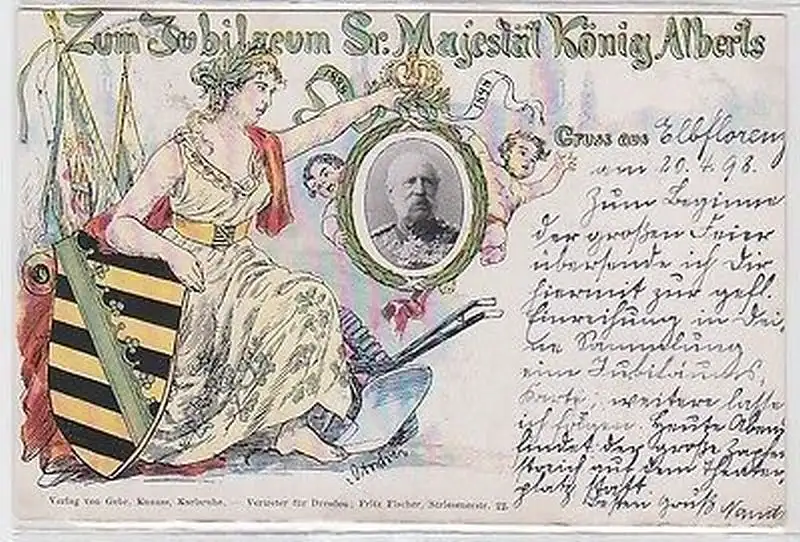 Zum Jubilaeum Sr. Majestät König Alberts
1898
Gruss aus Elbflorenz
am 20.4.98.
Zum Beginne
der großen Feier
übersende ich Dir
hiermit zur gefl.
Einreihung in Dei,
ne Sammlung
eine Jubiläums,
Karte; weitere lasse
ich folgen. Heute Abend
findet der große Zapfen
streich auf dem Theater,
platz statt.
Besten Gruß
Verlag von Gebr. Knauss, Karlsruhe. — Vertreter für Dresden: Fritz Fischer, 22.